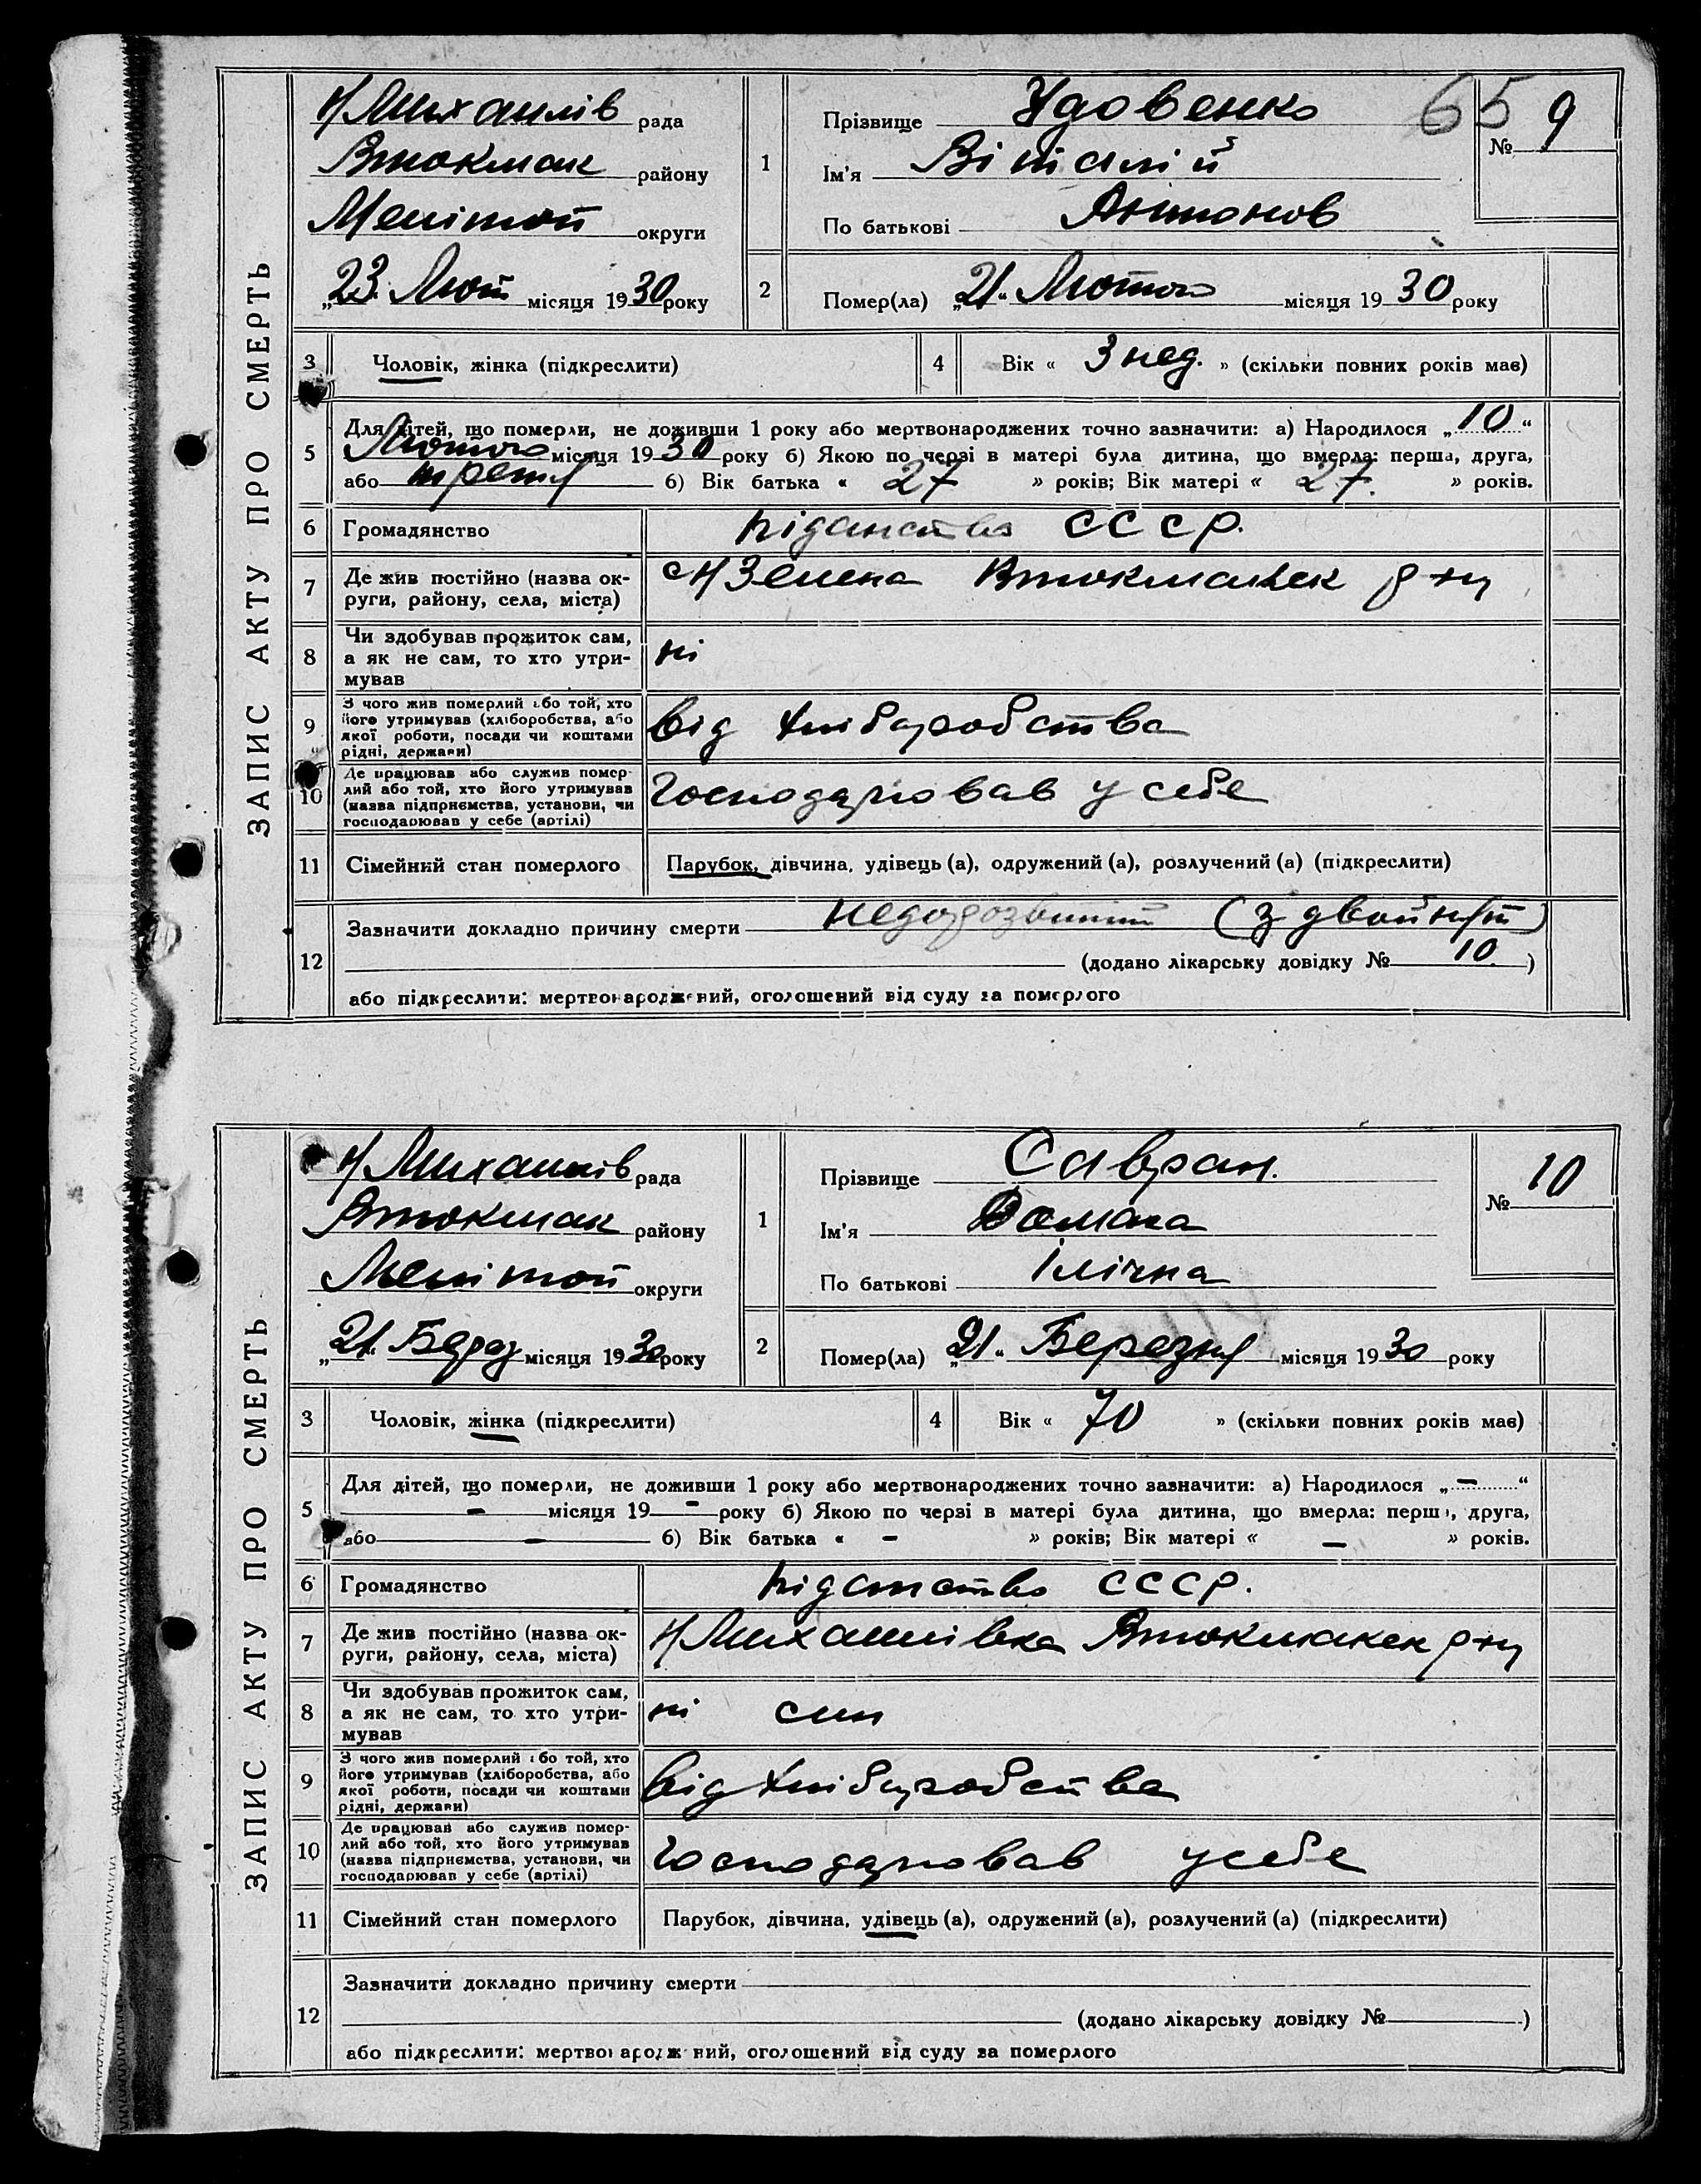 ЗАПИС АКТУ ПРО СМЕРТЬ
Н Михайлів рада
Втокмак району
Меліт округи
„23" Лют місяця 1930 року
1
Прізвище Удовенко
Ім'я Віталій
По батькові Антонов
65
№ 9
2
Помер(ла) „21" Лютого місяця 1930 року
3
Чоловік, жінка (підкреслити)
4
Вік « 3 нед. » (скільки повних років має)
5
Для дітей, що померли, не доживши 1 року або мертвонароджених точно зазначити: а) Народилося „10"
Лютого місяця 1930 року б) Якою по черзі в матері була дитина, що вмерла: перша, друга,
або третя б) Вік батька « 27 » років; Вік матері « 27. » років.
6
Громадянство
підданство СССР.
7
Де жив постійно (назва ок-
руги, району, села, міста)
с Н Зелена Втокмацьк р-ну
8
Чи здобував прожиток сам,
а як не сам, то хто утри-
мував
ні
9
З чого жив померлий або той, хто
його утримував (хліборобства, або
якої роботи, посади чи коштами
рідні, держави)
від хліборобства
10
Де працював або служив помер-
лий або той, хто його утримував
(назва підприємства, установи, чи
господарював у себе (артілі)
Господарював у себе
11
Сімейний стан померлого
Парубок, дівчина, удівець (а), одружений (а), розлучений (а) (підкреслити)
12
Зазначити докладно причину смерти (з двойнят)
(додано лікарську довідку № 10 )
або підкреслити: мертвонароджений, оголошений від суду за померлого
ЗАПИС АКТУ ПРО СМЕРТЬ
Н Михайлів рада
Втокмак району
Меліт округи
„21" Берез місяця 1930 року
1
Прізвище Савран.
Ім'я Домаха
По батькові Ілічна
№ 10
2
Помер(ла) „21" Березня місяця 1930 року
3
Чоловік, жінка (підкреслити)
4
Вік « 70 » (скільки повних років має)
5
Для дітей, що померли, не доживши 1 року або мертвонароджених точно зазначити: а) Народилося „ - "
- місяця 19 - року б) Якою по черзі в матері була дитина, що вмерла: перша, друга,
або - б) Вік батька « - » років; Вік матері « - » років.
6
Громадянство
підданство СССР.
7
Де жив постійно (назва ок-
руги, району, села, міста)
Н Михайлівка Втокмацьк р-ну
8
Чи здобував прожиток сам,
а як не сам, то хто утри-
мував
ні син
9
З чого жив померлий або той, хто
його утримував (хліборобства, або
якої роботи, посади чи коштами
рідні, держави)
від хліборобства
10
Де працював або служив помер-
лий або той, хто його утримував
(назва підприємства, установи, чи
господарював у себе (артілі)
Господарював у себе
11
Сімейний стан померлого
Парубок, дівчина, удівець (а), одружений (а), розлучений (а) (підкреслити)
12
Зазначити докладно причину смерти
(додано лікарську довідку № )
або підкреслити: мертвонароджений, оголошений від суду за померлого